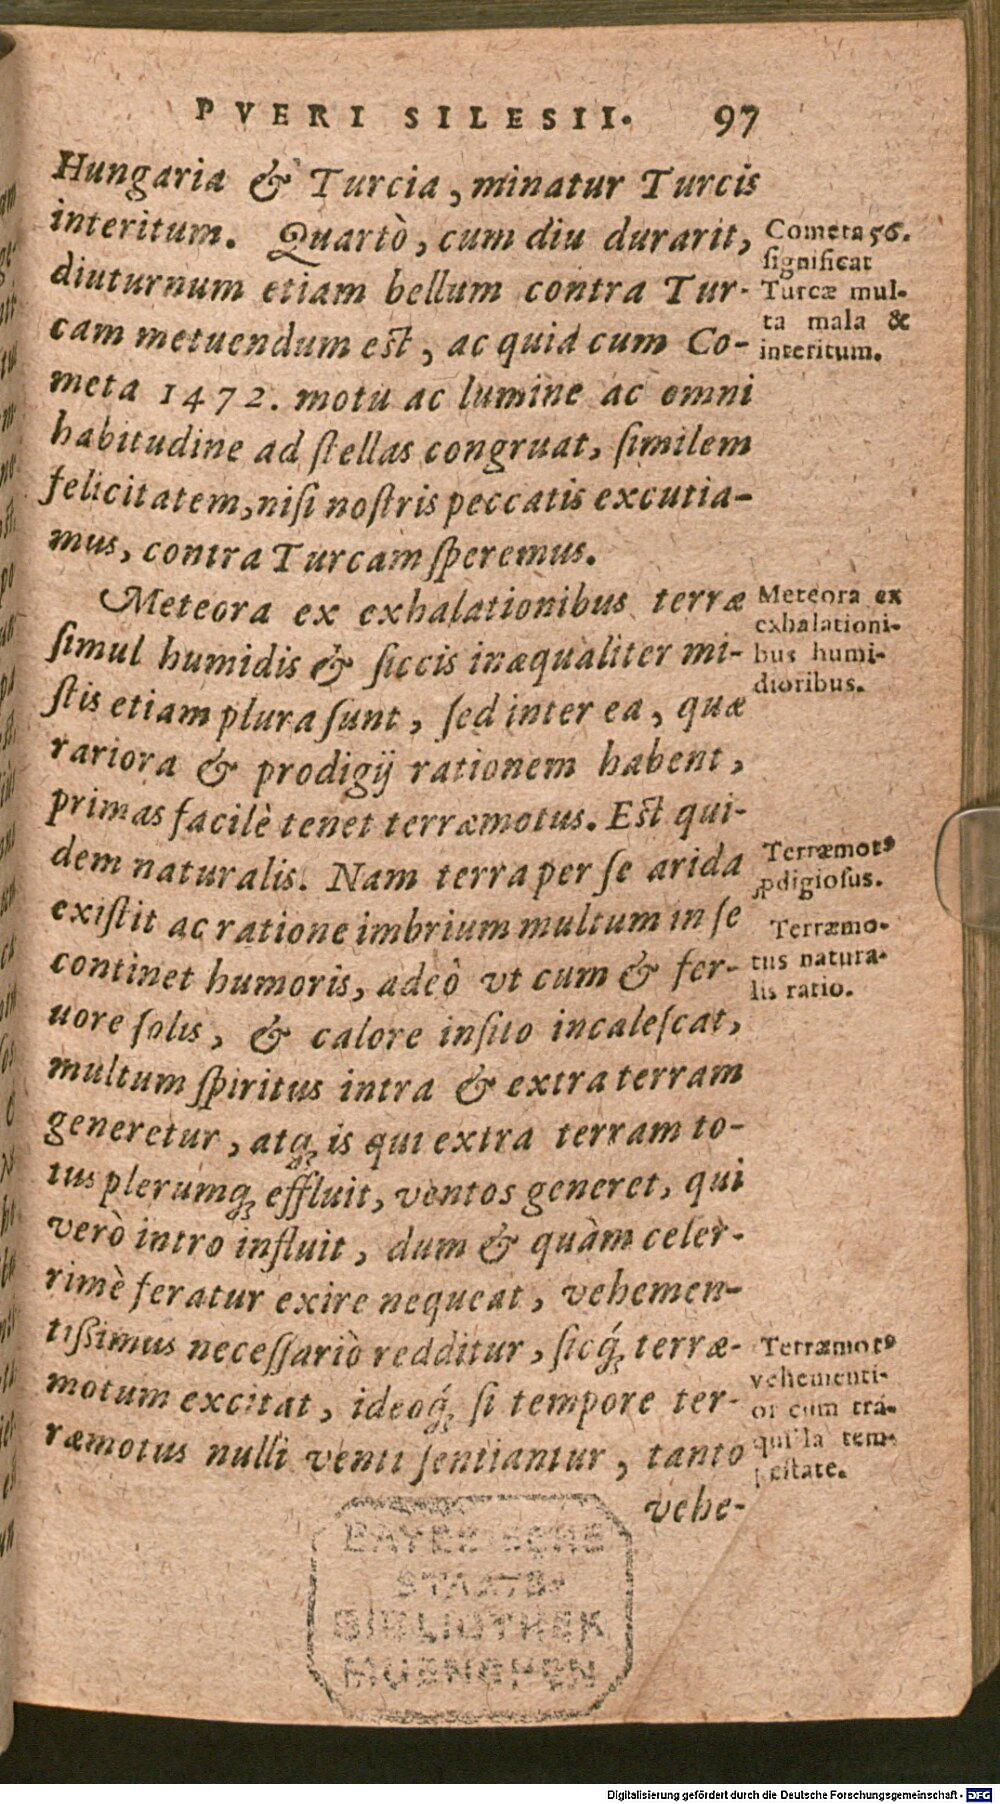 PVERI SILESII. 97
Hungaria & Turcia, minatur Turcis
interitum. Quartò, cum diu durarit,
diuturnum etiam bellum contra Tur-
cam metuendum est, ac quid cum Co-
meta 1472. motu ac lumine ac omni
habitudine ad ſtellas congruat, ſimilem
felicitatem, niſi noſtris peccatis excutia-
mus, contra Turcam ſperemus.
Cometa 56.
ſignificat
Turcæ mul-
ta mala &
interitum.
Meteora ex exhalationibus terræ
ſimul humidis & ſiccis inæqualiter mi-
ſtis etiam plura ſunt, ſed inter ea, quæ
rariora & prodigij rationem habent,
primas facilè tenet terræmotus. Est qui-
dem naturalis. Nam terra per ſe arida
exiſtit ac ratione imbrium multum in ſe
continet humoris, adeò vt cum & fer-
uore ſolis, & calore inſito incaleſcat,
multum ſpiritus intra & extra terram
generetur, atq; is qui extra terram to-
tus plerumq; effluit, ventos generet, qui
verò intro influit, dum & quàm celer-
rimè feratur exire nequeat, vehemen-
tiſsimus neceſſariò redditur, ſicq́; terræ-
motum excitat, ideoq́; ſi tempore ter-
ræmotus nulli venti ſentiantur, tanto
vehe-
Meteora ex
exhalationi-
bus humi-
dioribus.
Terræmotꝰ
ꝓdigioſus.
Terræmo-
tus natura-
lis ratio.
Terræmotꝰ
vehementi-
or cum trā-
quilla tem-
peſtate.
BAYERISCHE
STAATS-
BIBLIOTHEK
MUENCHEN
Digitalisierung gefördert durch die Deutsche Forschungsgemeinschaft - DFG